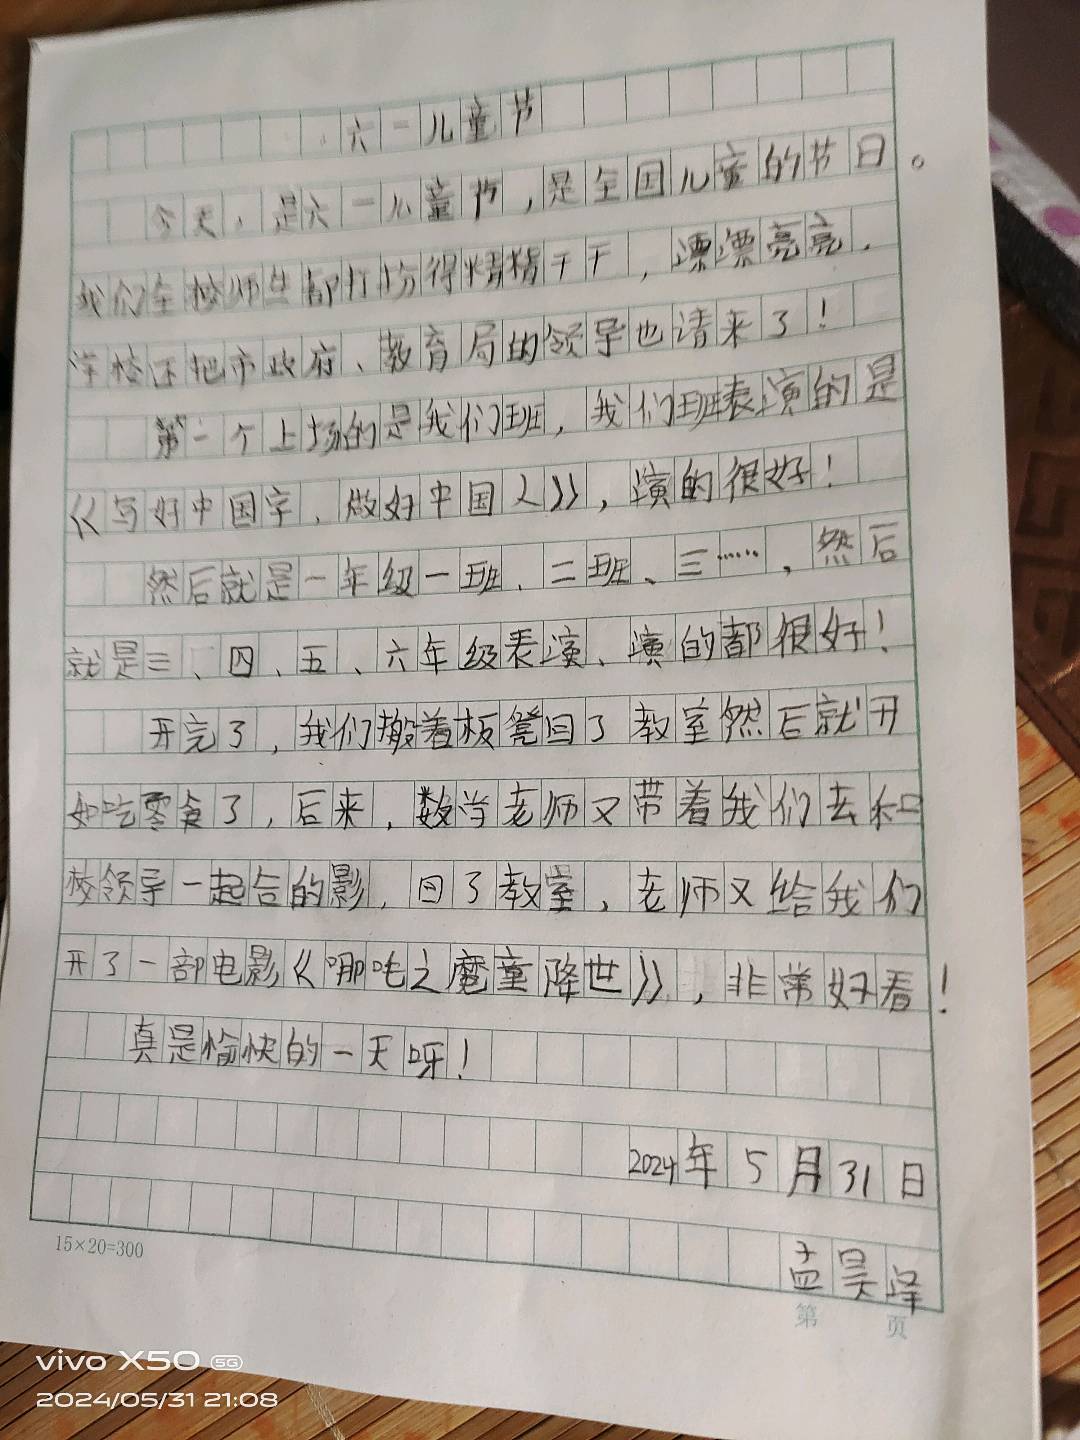 六一儿童节
今天,是六一儿童节,是全国儿童的节日。
我们全校师生都打扮得精精干干,漂漂亮亮.
学校还把市政府、教育局的领导也请来了!
第一个上场的是我们班,我们班表演的是
《写好中国字,做好中国人》,演的很好!
然后就是一年级一班、二班、三……,然后
就是三、四、五、六年级表演、演的都很好!
开完了,我们搬着板凳回了教室然后就开
如吃零食了,后来,数学老师又带着我们去和
校领导一起合的影,回了教室,老师又给我们
开了一部电影《哪吒之魔童降世》,非常好看!
真是愉快的一天呀!
2024年5月31日
孟昊泽
15×20=300
第 页
vivo X50 5G
2024/05/31 21:08